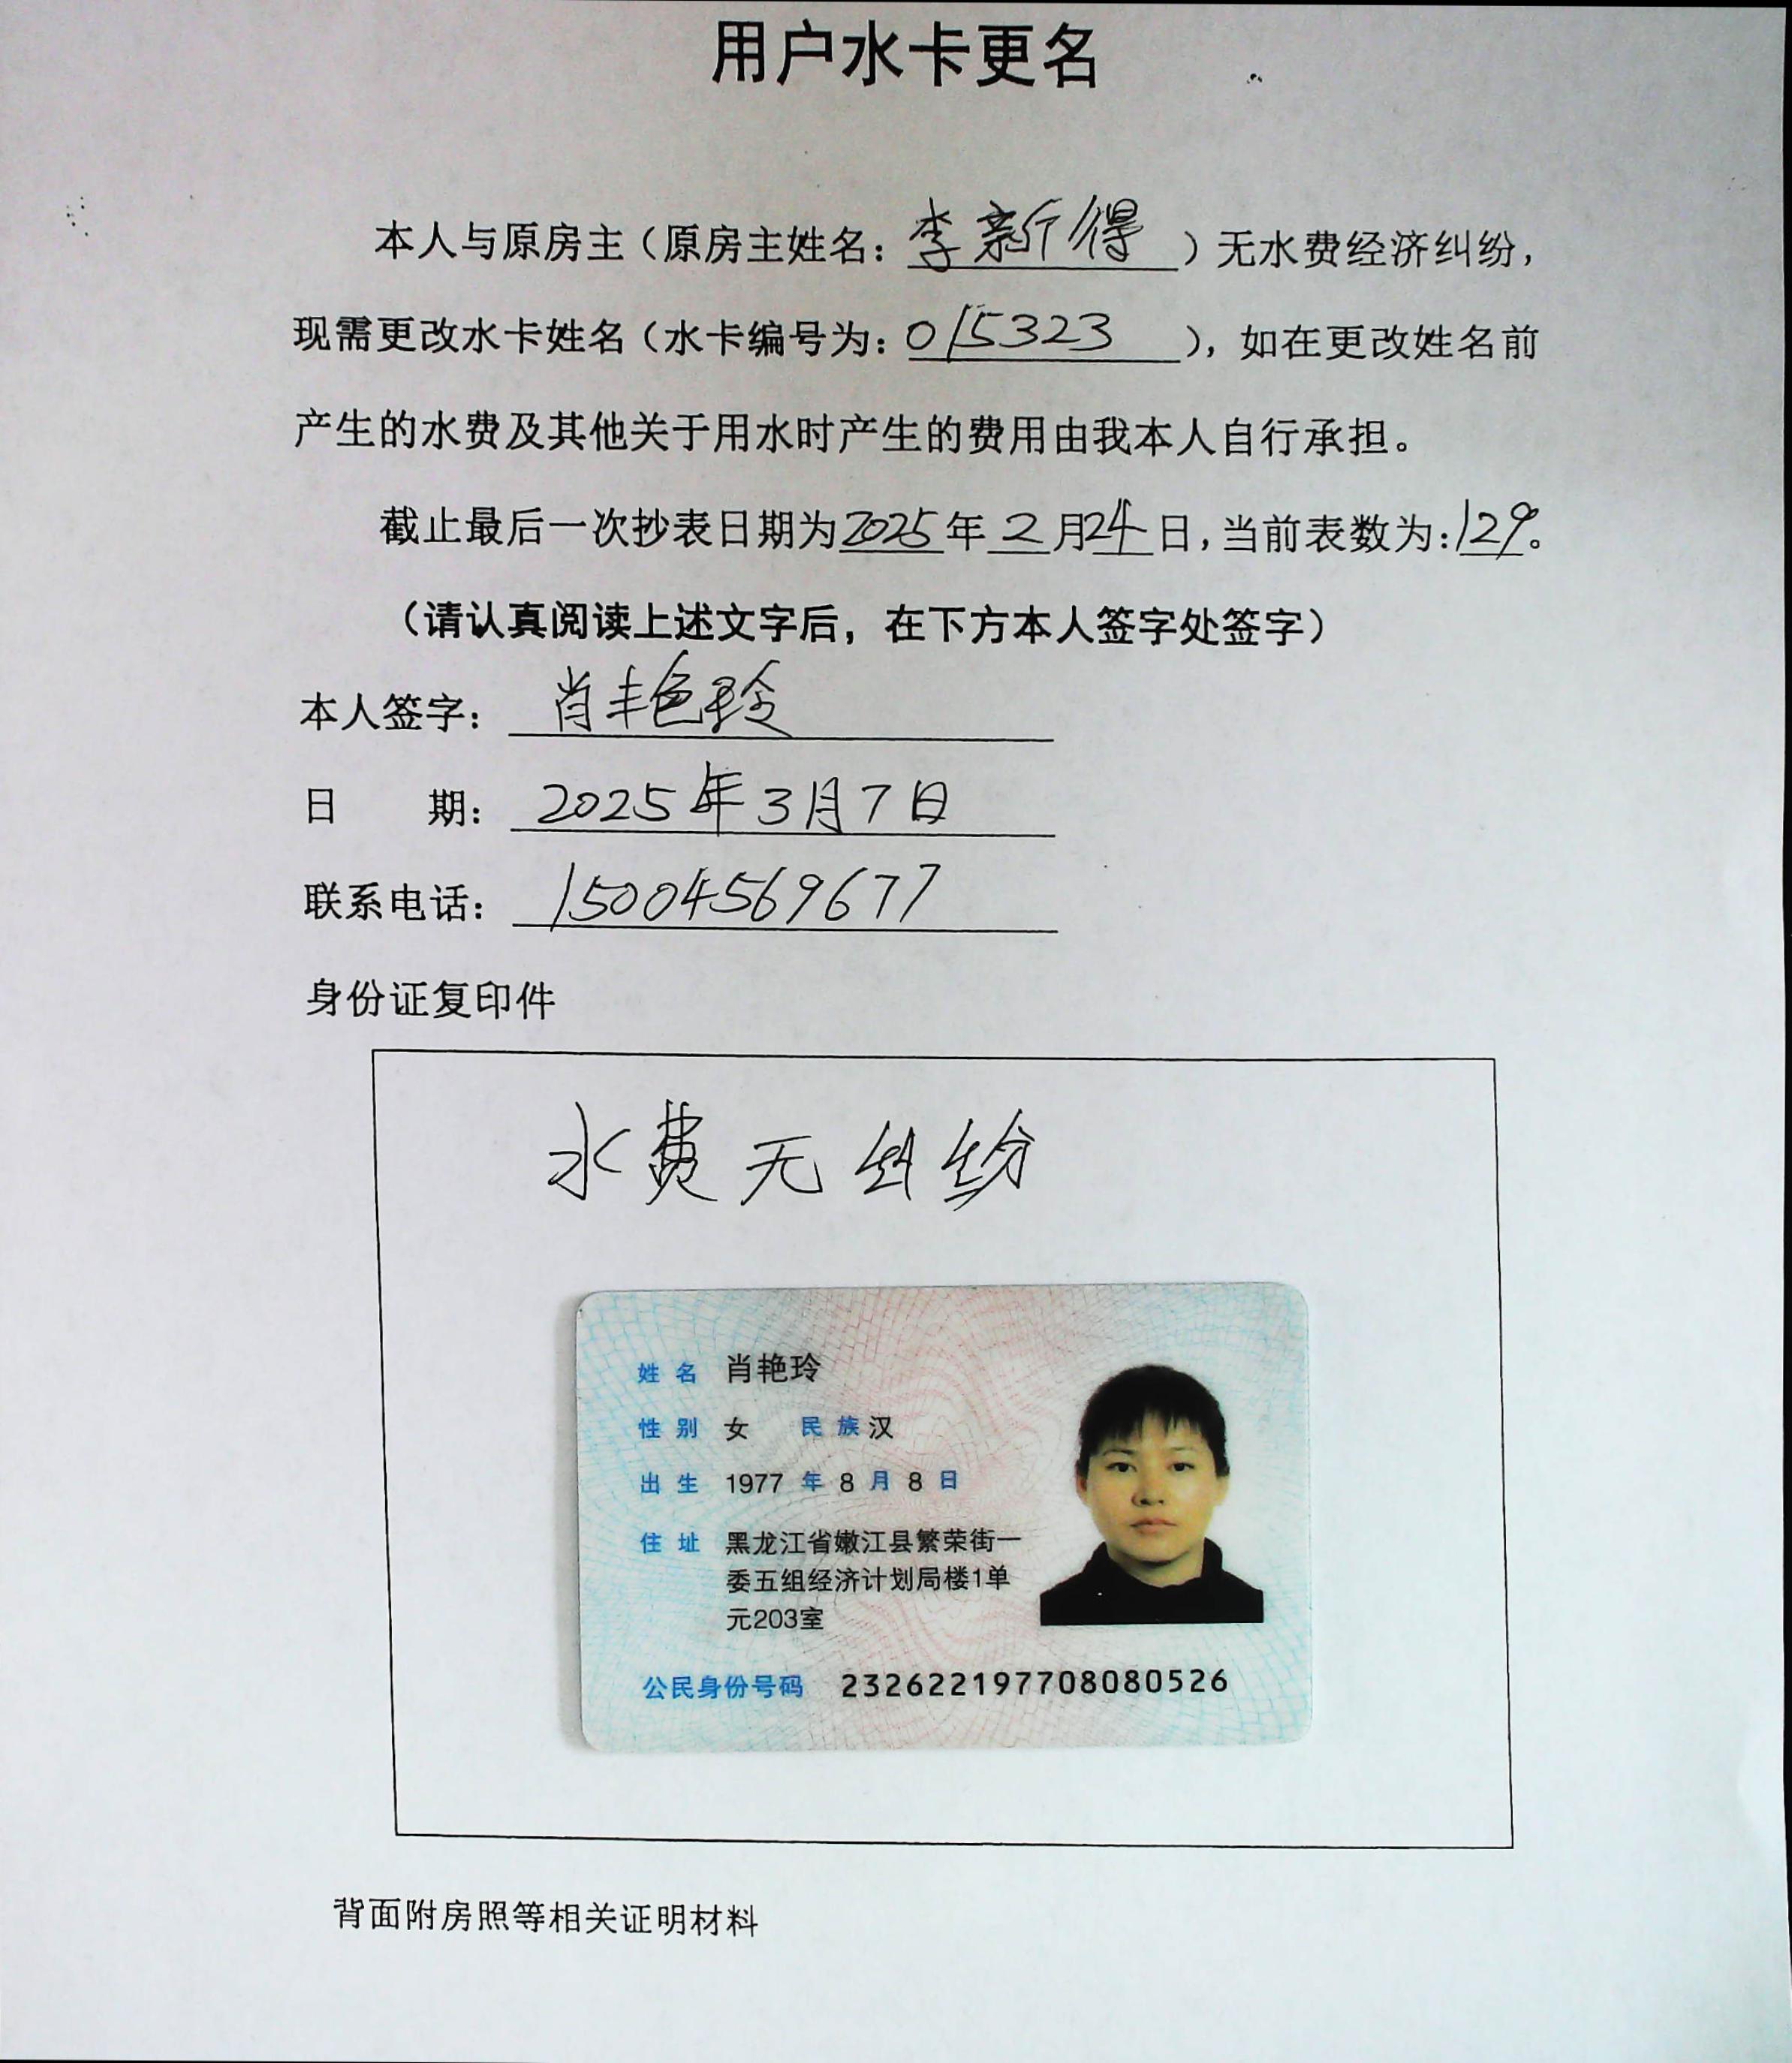 用户水卡更名
本人与原房主（原房主姓名：李新得）无水费经济纠纷，
现需更改水卡姓名（水卡编号为：015323），如在更改姓名前
产生的水费及其他关于用水时产生的费用由我本人自行承担。
截止最后一次抄表日期为2025年2月24日，当前表数为：129。
（请认真阅读上述文字后，在下方本人签字处签字）
本人签字：肖艳玲
日 期：2025年3月7日
联系电话：15004569677
身份证复印件
水费无纠纷
姓名 肖艳玲
性别 女 民族 汉
出生 1977年8月8日
住址 黑龙江省嫩江县繁荣街一
委五组经济计划局楼1单
元203室
公民身份号码 232622197708080526
背面附房照等相关证明材料